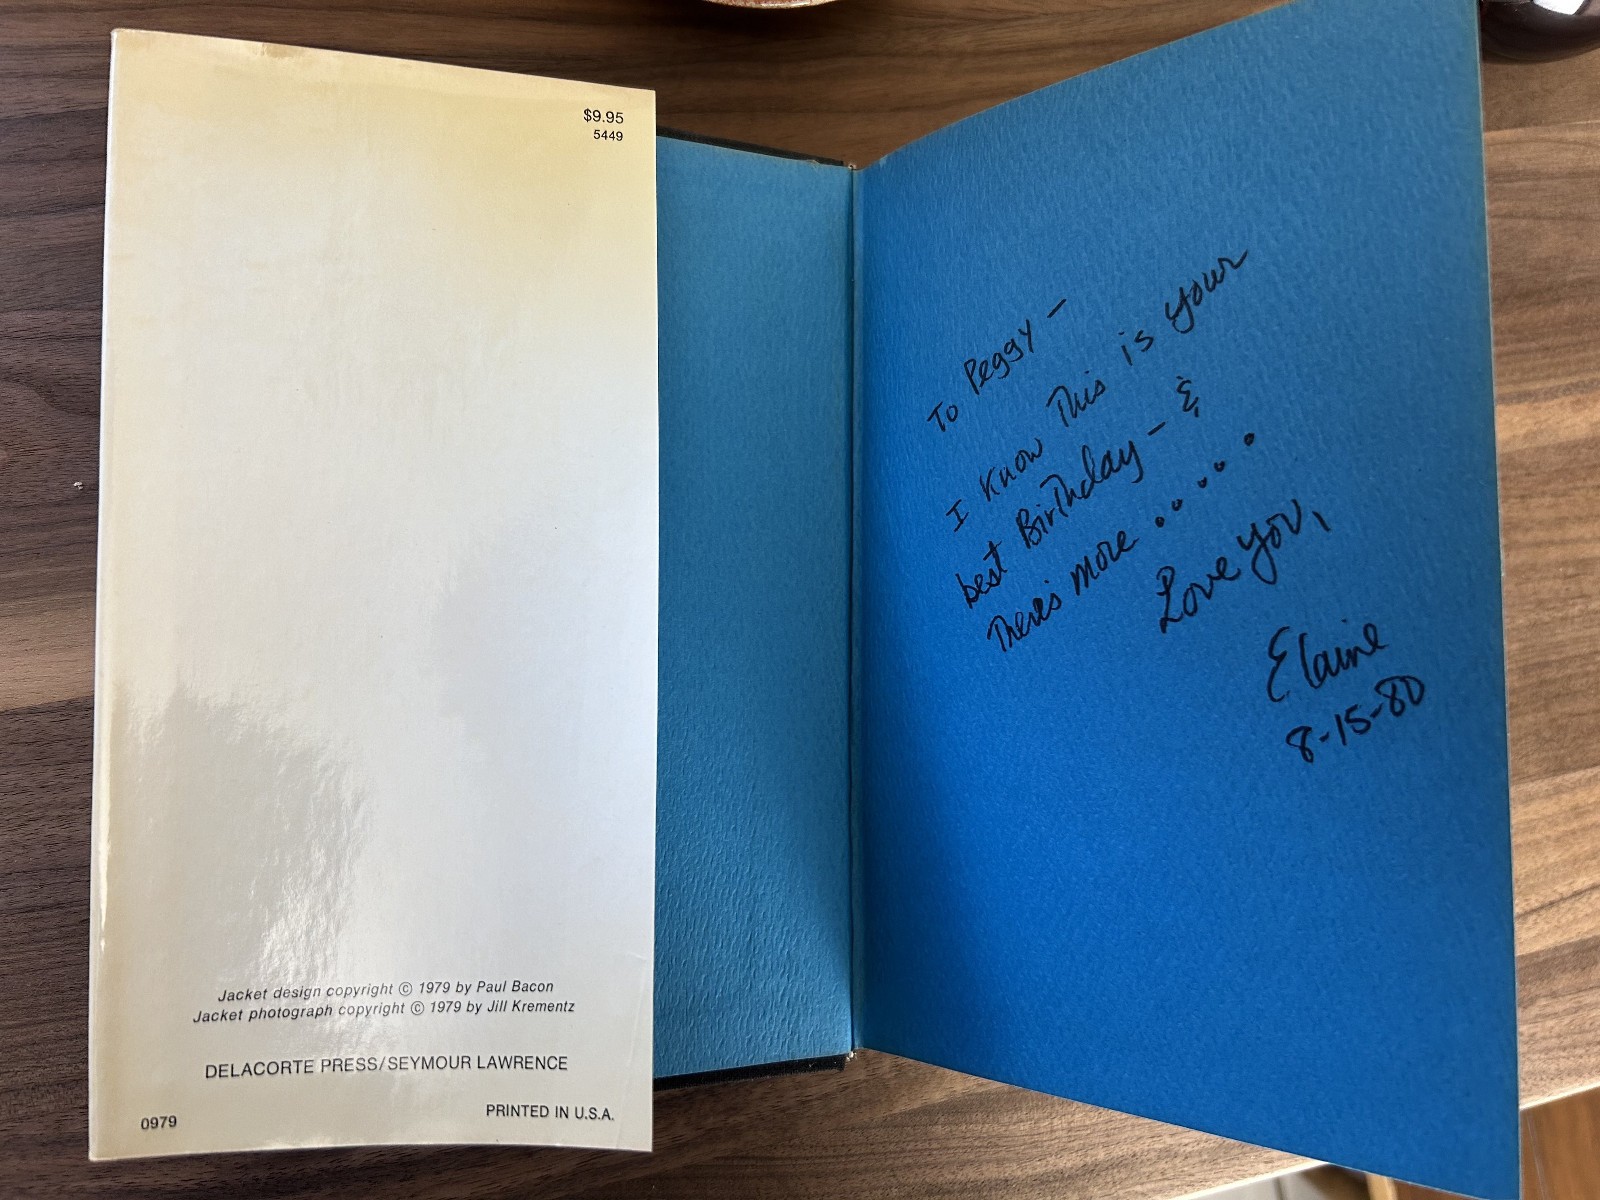 $9.95
5449
Jacket design copyright © 1979 by Paul Bacon
Jacket photograph copyright © 1979 by Jill Krementz
DELACORTE PRESS/SEYMOUR LAWRENCE
0979
PRINTED IN U.S.A.
To Peggy –
I know This is your
best Birthday – &
There's more . . . . . .
Love you,
Elaine
8-15-80